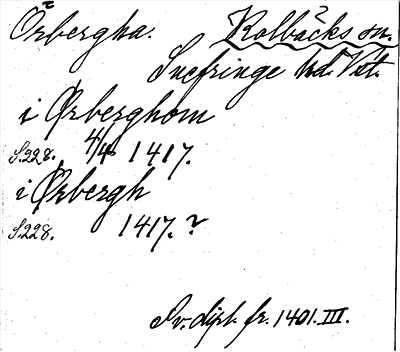 Örbergha. Kolbäcks sn.
Snefringe hd. Vstl.
i Ørberghom
S.228. 4/4 1417.
i Ørbergh
S.228. 1417.?
Sv. dipl. fr. 1401. III.